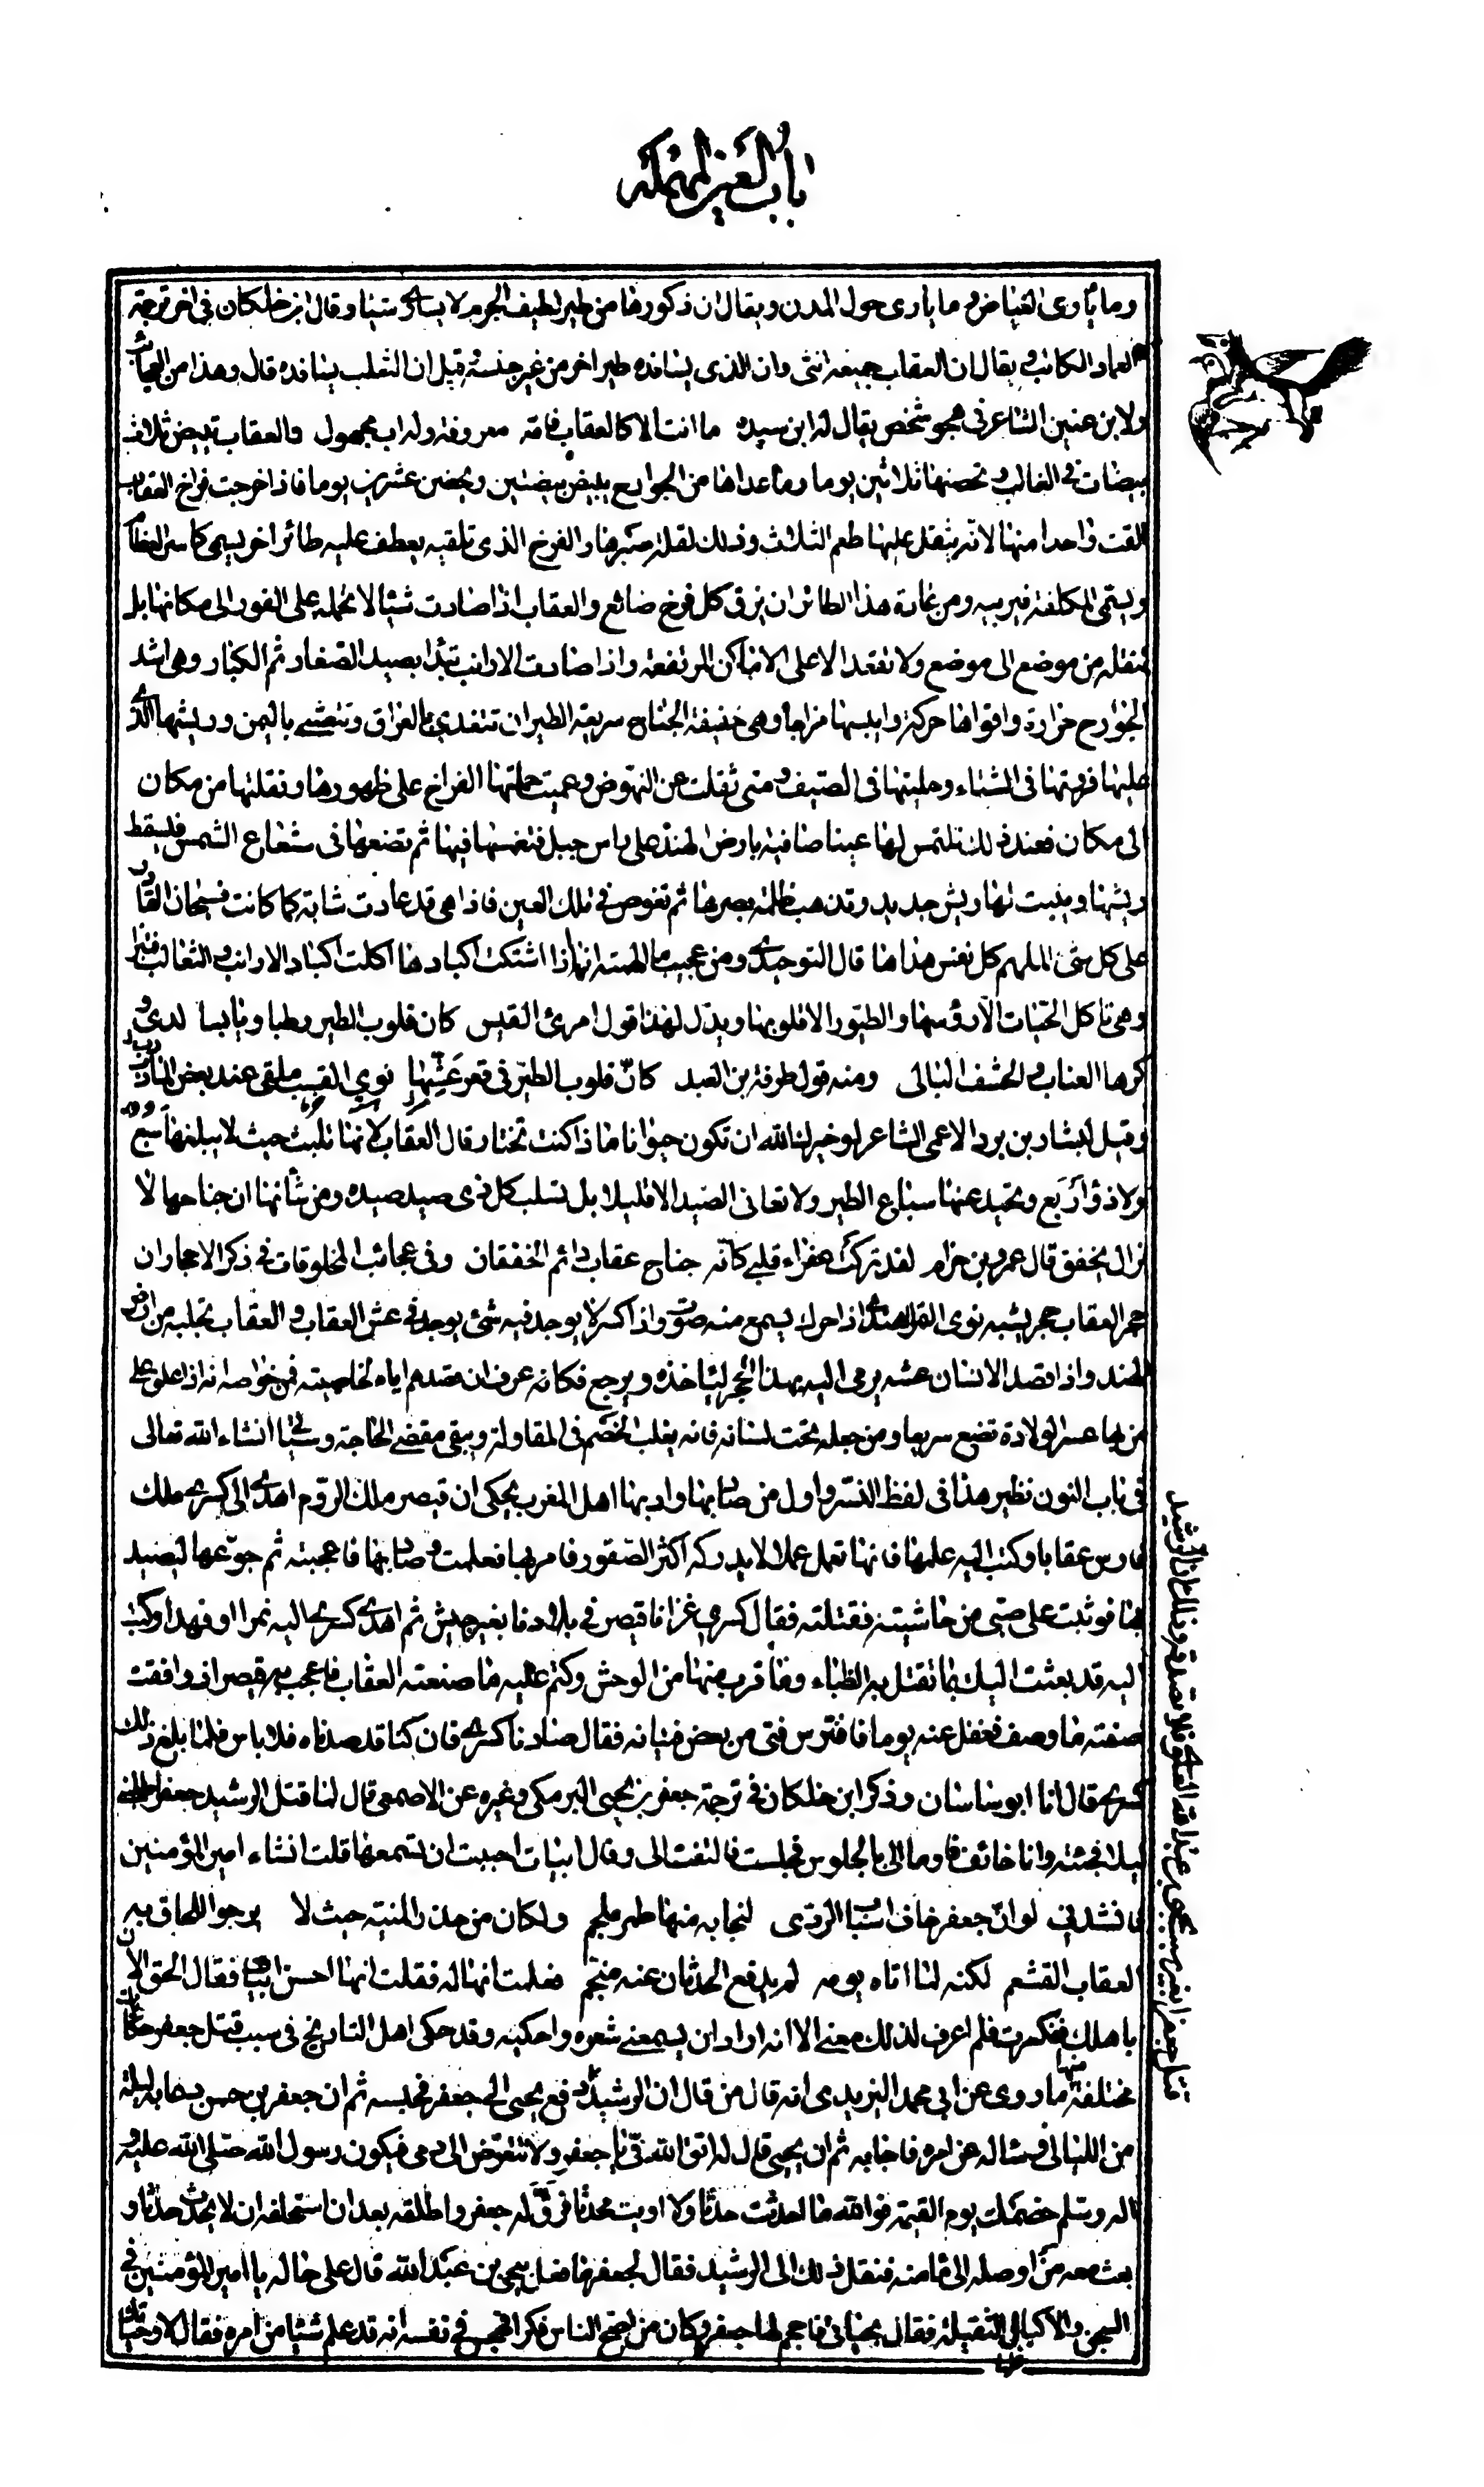 باب العين المهملة
وما يأوى الغياض وما يأوى حول المدن ويقال ان ذكورها من طير لطيف الجرم لا يساوى شيئا وقال ابن خلكان فى اخر ترجمة
العماد الكاتب ويقال ان العقاب جميعه انثى وان الذى يسافده طير اخر من غير جنسه وقيل ان الثعلب يسافده قال وهذا من العجائب
ولابن عنين الشاعر فى هجو شخص يقال له ابن سيده ما انت الا كالعقاب فامه معروفة وله اب مجهول والعقاب تبيض ثلاث
بيضات فى الغالب وتحضنها ثلاثين يوما وما عداها من الجوارح يبيض بيضتين ويحضن عشرين يوما فاذا خرجت فراخ العقاب
القت واحدا منها لانه يثقل عليها طعم الثلاث وذلك لقلة صبرها والفرخ الذى تلقيه يعطف عليه طائر اخر يسمى كاسر العظام
ويسمى المكلفة فيربيه ومن عادة هذا الطائر ان يزق كل فرخ ضائع والعقاب اذا صادت شيئا لا تحمله على الفور الى مكانها بل
تنقله من موضع الى موضع ولا تقعد الا على الاماكن المرتفعة واذا صادت الارانب تبدأ بصيد الصغار ثم الكبار وهى اشد
الجوارح حرارة واقواها حركة وايبسها مزاجا وهى خفيفة الجناح سريعة الطيران تتغدى بالعراق وتتعشى باليمن وريشها الذى
عليها فروتها فى الشتاء وحليتها فى الصيف ومتى ثقلت عن النهوض وعميت حملتها الفراخ على ظهورها ونقلتها من مكان
الى مكان فعند ذلك تلتمس لها عينا صافية بارض الهند على راس جبل فتغمسها فيها ثم تضعها فى شعاع الشمس فيسقط
ريشها وينبت لها ريش جديد وتذهب ظلمة بصرها ثم تغوص فى تلك العين فاذا هى قد عادت شابة كما كانت فسبحان القادر
على كل شئ الملهم كل نفس هداها قال التوحيدى ومن عجيب ما الهمته انها اذا اشتكت اكبادها اكلت اكباد الارانب والثعالب فتبرأ
وهى تاكل الحيات الا رؤسها والطيور الا قلوبها ويدل لهذا قول امرئ القيس كان قلوب الطير رطبا ويابسا لدى و
كرها العناب والحشف البالى ومنه قول طرفة بن العبد كانّ قلوب الطير فى قعر عشّها نوى القسب ملقى عند بعض المآدب
وقيل لبشار بن برد الاعمى الشاعر لو خيرك الله ان تكون حيوانا ماذا كنت تختار قال العقاب لانها تلبث حيث لا يبلغها سبع
ولا ذو اربع وتحيد عنها سباع الطير ولا تعانى الصيد الا قليلا بل تسلب كل ذى صيد صيده ومن شأنها ان جناحها لا
يزال يخفق قال عمرو بن حزام لقد تركت عفراء قلبى كانه جناح عقاب دائم الخفقان وفى عجائب المخلوقات فى ذكر الاحجار ان
حجر العقاب حجر يشبه نوى التمر هندى اذا حرك يسمع منه صوت واذا كسر لا يوجد فيه شئ يوجد فى عش العقاب والعقاب تجلبه من ارض
الهند واذا قصد الانسان عشه يرمى اليه بهذا الحجر لياخذه ويرجع فكانه عرف ان قصدهم اياه لخاصيته فمن خواصه انه اذا علق على
من بها عسر الولادة تضع سريعا ومن جعله تحت لسانه فانه يغلب الخصم فى المقاولة ويبقى مقضى الحاجة وسيأتى انشاء الله تعالى
فى باب النون نظير هذا فى لفظ النسر واول من صاد بها وادبها اهل المغرب يحكى ان قيصر ملك الروم اهدى الى كسرى ملك
فارس عقابا وكتب اليه علمها فانها تعمل عملا لا يدركه اكثر الصقور فامر بها فعلمت وصاد بها فاعجبته ثم جوعها ليصيد
بها فوثبت على صبى من حاشيته فقتلته فقال كسرى غزانا قيصر فى بلادنا بغير جيش ثم اهدى كسرى اليه نمرا او فهدا وكتب
اليه قد بعثت اليك بما تقتل به الظباء وما قرب منها من الوحش وكتم عليه ما صنعته العقاب فاعجب به قيصر اذ وافقت
صفته ما وصف فغفل عنه يوما فافترس فتى من بعض فتيانه فقال صادنا كسرى فان كنا قد صدناه فلا باس فلما بلغ ذلك
كسرى قال انا ابو ساسان وذكر ابن خلكان فى ترجمة جعفر بن يحيى البرمكى وغيره عن الاصمعى قال لما قتل الرشيد جعفرا طلبنى
ليلا فجئته وانا خائف فاومأ الى بالجلوس فجلست فالتفت الى وقال ابيات احببت ان تسمعها قلت انشاء امير المؤمنين
فانشدنى لو ان جعفر خاف اسباب الردى لنجا به منها طمر ملجم ولكان من حذر المنية حيث لا يرجو اللحاق به
العقاب القشعم لكنه لما اتاه يومه لم يدفع الحدثان عنه منجم فعلمت انها له فقلت انها احسن ابيات فقال الحق الآن
باهلك ففكرت فلم اعرف لذلك معنى الا انه اراد ان يسمعنى شعره واحكيه وقد حكى اهل التاريخ فى سبب قتل جعفر حكايات
مختلفة منها ما روى عن ابى محمد اليزيدى انه قال من قال ان الرشيد دفع يحيى الى جعفر فحبسه ثم ان جعفر دعا به ليلة
من الليالى وساله عن امره فاجابه ثم ان يحيى قال له اتق الله فىّ يا جعفر ولا تتعرض الى دمى فيكون رسول الله صلى الله عليه و
اله وسلم خصمك يوم القيمة فوالله ما احدثت حدثا ولا اويت محدثا فرقّ له جعفر واطلقه بعد ان استحلفه ان لا يحدث حدثا و
بعث معه من اوصله الى مأمنه فنقل ذلك الى الرشيد فقال لجعفر ما فعل يحيى بن عبد الله قال على حاله يا امير المؤمنين فى
السجن والاكبال الثقيلة فقال بحياتى فاحجم لها جعفر وكان من اصح الناس فكرا فهجس فى نفسه انه قد علم شيئا من امره فقال لا وحياتك